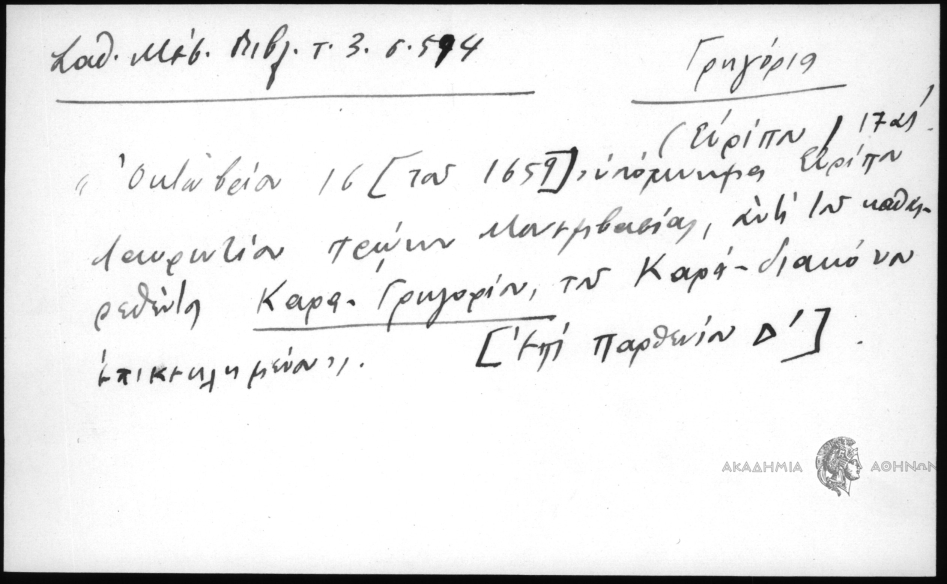 Σαθ. Μεσ. Βιβλ. τ. 3. σ. 594
Γρηγόριος
(Εὐρίπου) 17 αἰ.
"Ὀκτωβρίου 16 [τοῦ 1659], ὑπόμνημα Εὐρίπου
Λαυρεντίου πρώην Μονεμβασίας, ἀντὶ τοῦ καθαι-
ρεθέντος Καρα-Γρηγορίου, τοῦ Καρά-διακόνου
ἐπικεκλημένου".
[Ἐπὶ Παρθενίου Δ'].
ΑΚΑΔΗΜΙΑ ΑΘΗΝΩΝ